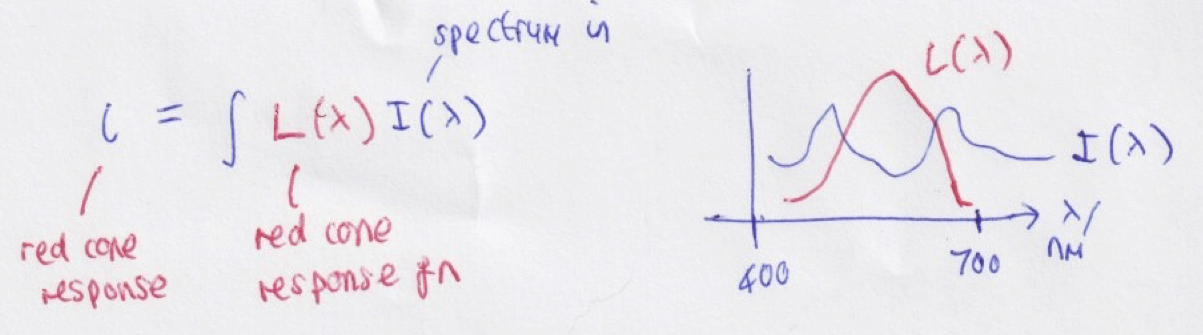 spectrum in
l = ∫ L(λ) I(λ)
red cone
response
red cone
response fn
L(λ)
I(λ)
λ/
nm
400
700